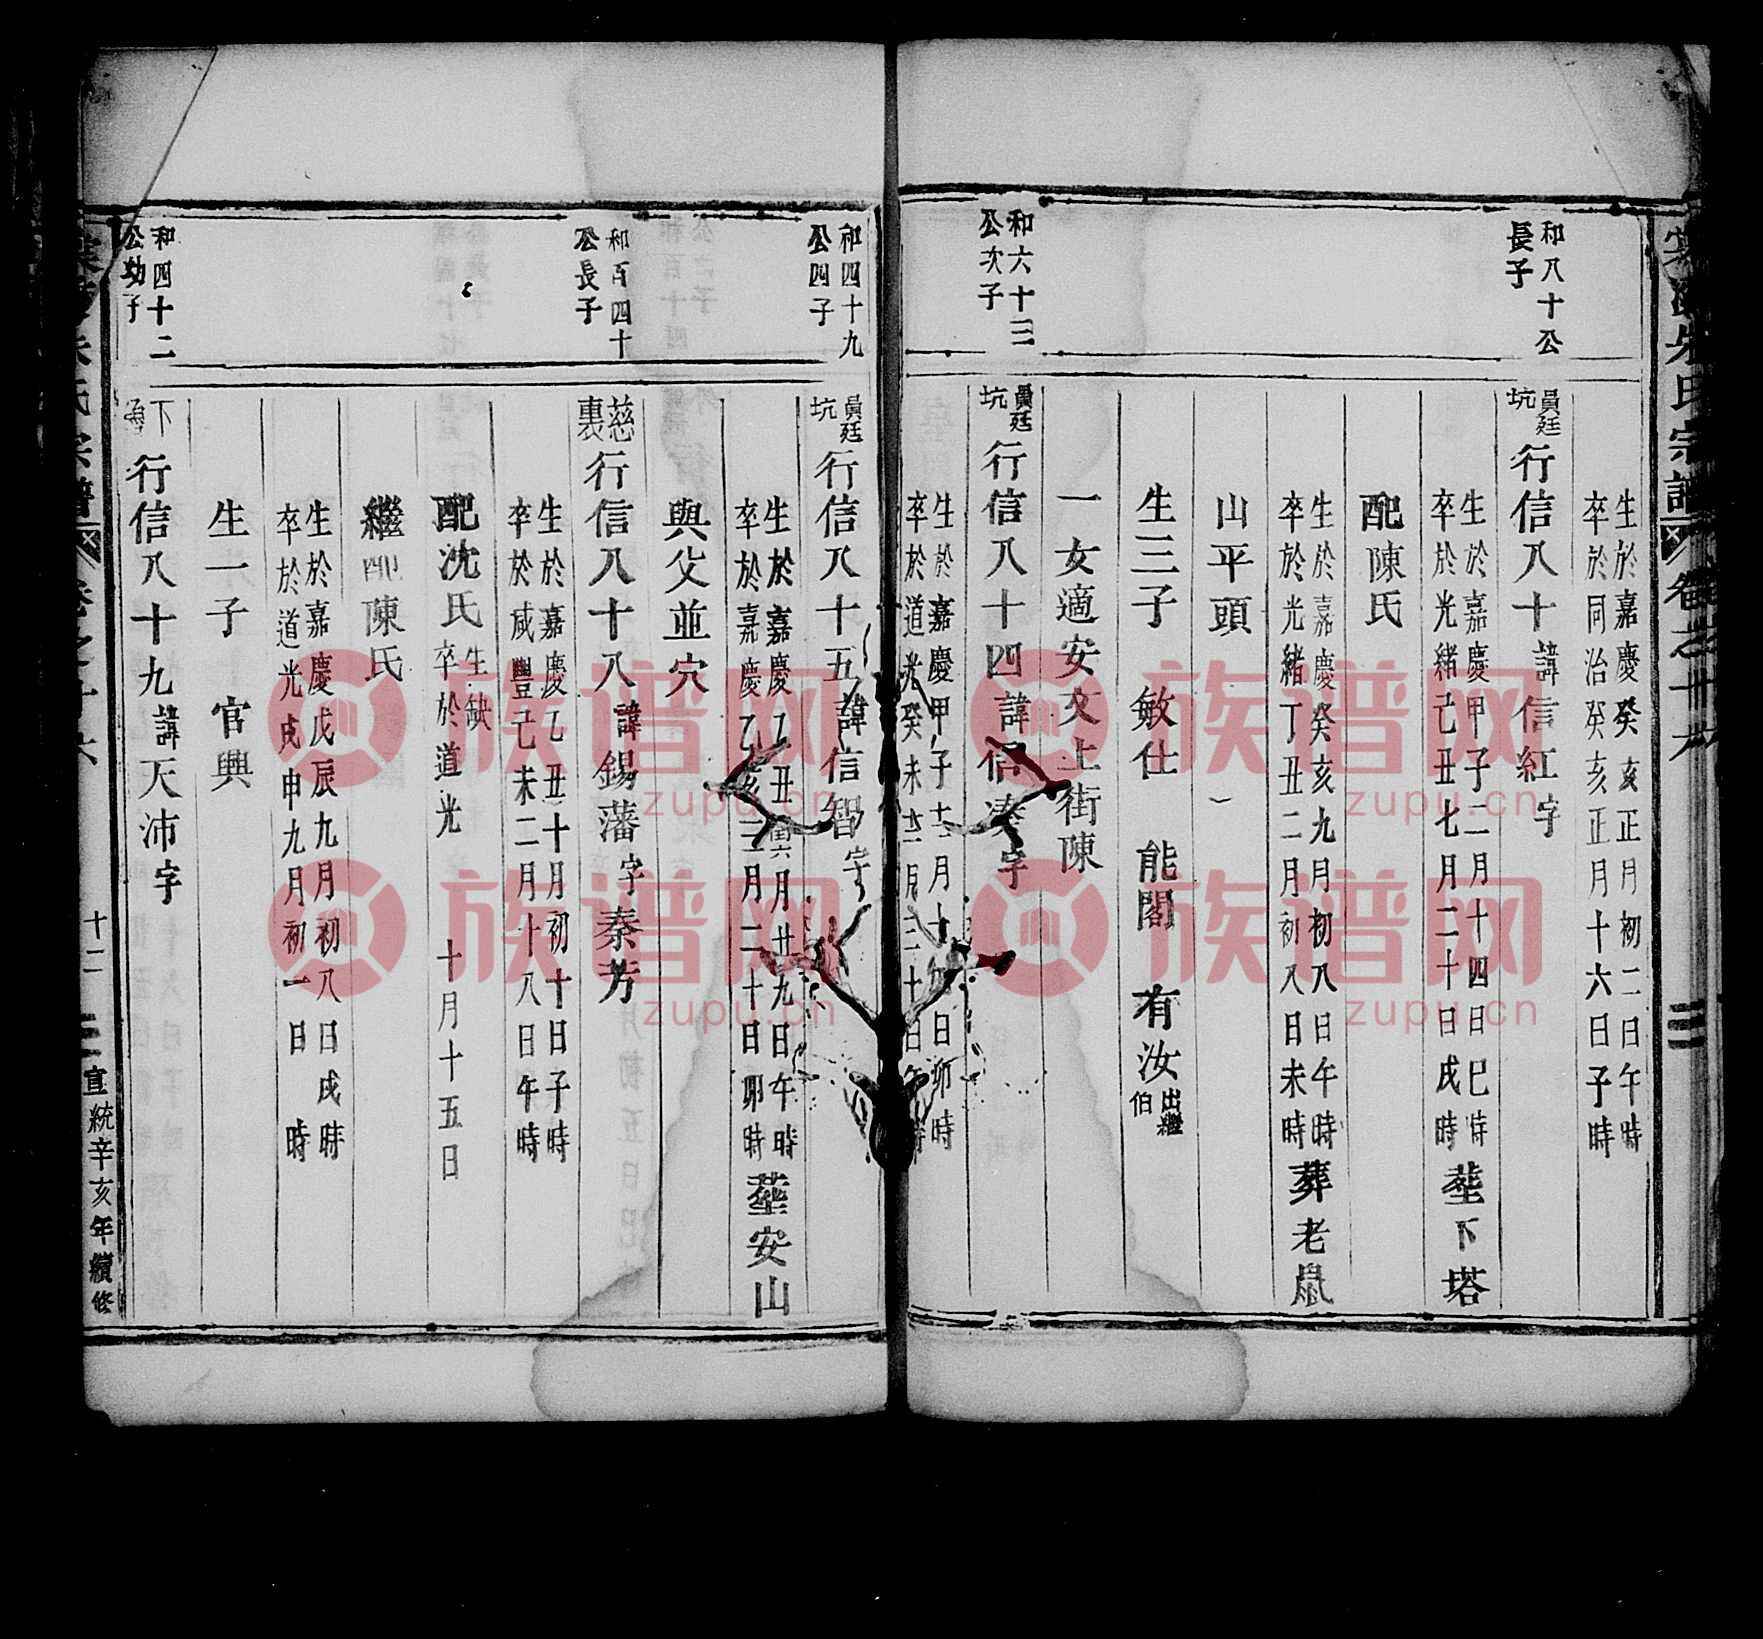 朱氏宗譜
卷之十六
和八十公
長子
和六十三
公次子
生於嘉慶癸亥正月初二日午時
卒於同治癸亥正月十六日子時
員廷
坑
行信八十諱信紅字
生於嘉慶甲子二月十四日巳時
卒於光緒己丑七月二十日戌時
塟下塔
配陳氏
生於嘉慶癸亥九月初八日午時
卒於光緒丁丑二月初八日未時
葬老鼠
山平頭
生三子 敏仕 能閣 有汝
出繼
伯
一女適安文上街陳
員廷
坑
行信八十四諱信湊字
生於嘉慶甲子十二月十日卯時
卒於道光癸未十二月三十日午時
和四十九
公四子
和百四十
公長子
和四十二
公幼子
員廷
坑
行信八十五諱信智字
生於嘉慶乙丑閏六月廿九日午時
卒於嘉慶乙亥三月二十日卯時
塟安山
與父並穴
慈
裏
行信八十八諱錫藩字秦芳
生於嘉慶乙丑十月初十日子時
卒於咸豐己未二月十八日午時
配沈氏
生缺
卒於道光 十月十五日
繼配陳氏
生於嘉慶戊辰九月初八日戌時
卒於道光戊申九月初一日 時
生一子 官興
下
行信八十九諱天沛字
朱氏宗譜
十二
宣統辛亥年續修
族谱网
zupu.cn
族谱网
zupu.cn
族谱网
zupu.cn
族谱网
zupu.cn